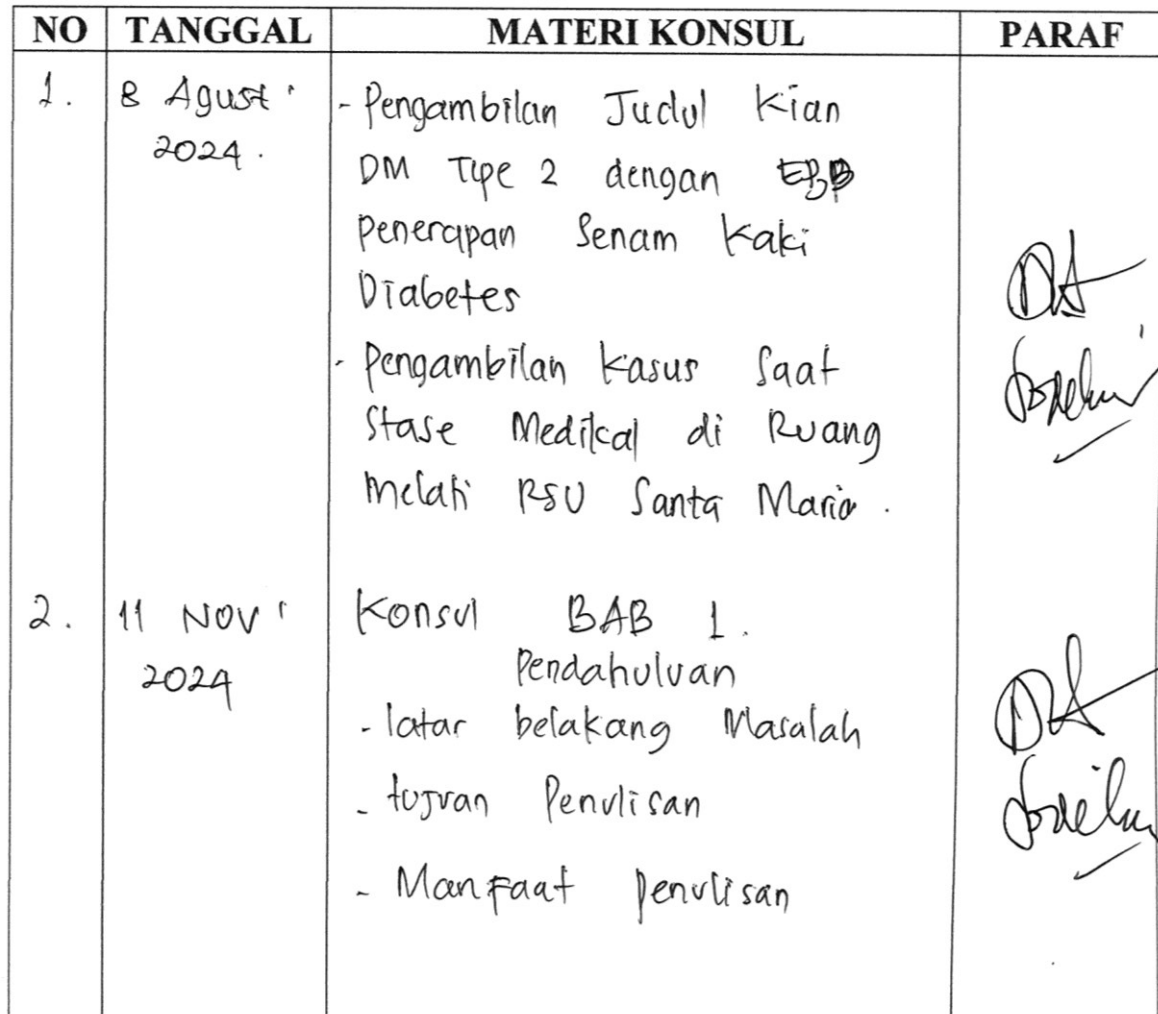 NO TANGGAL MATERI KONSUL PARAF
1. 8 Agust' - Pengambilan Judul Kian
2024. DM Tipe 2 dengan EBP
Penerapan Senam Kaki
Diabetes
- Pengambilan Kasus Saat
Stase Medikal di Ruang
Melati RSU Santa Maria.
2. 11 NOV' Konsul BAB 1.
Pendahuluan
2024
- latar belakang Masalah
- tujuan Penulisan
- Manfaat Penulisan